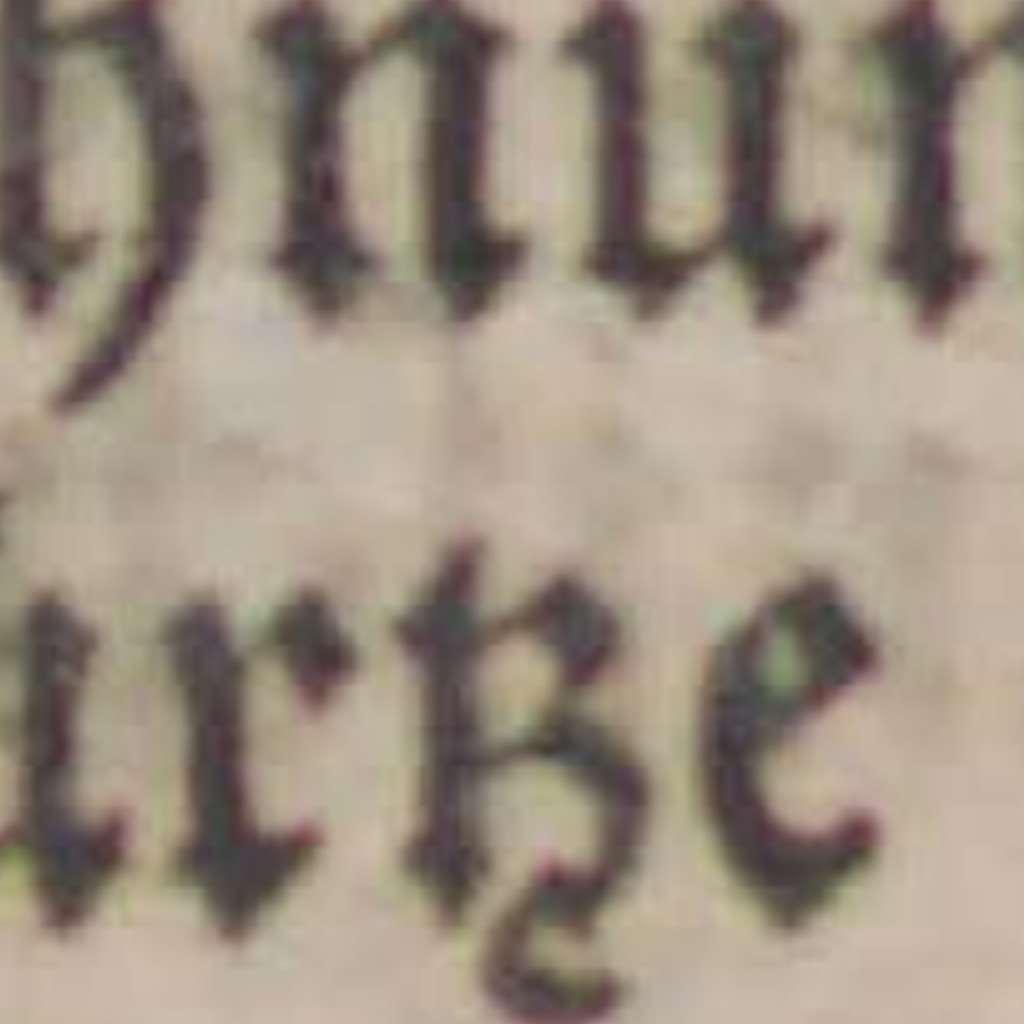 hnun
urtze